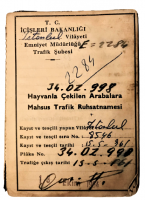 T. C.
İÇİŞLERİ BAKANLIĞI
İstanbul Vilâyeti
Emniyet Müdürlüğü E=2284
Trafik Şubesi
2284
34.OZ.998
Hayvanla Çekilen Arabalara
Mahsus Trafik Ruhsatnamesi
Kayıt ve tescili yapan Vilâyet İstanbul
Kayıt ve tescil sıra No.
Kayıt ve tescil tarihi
Plâka No. 34.OZ.998
Tesciliğe çıkış tarihi